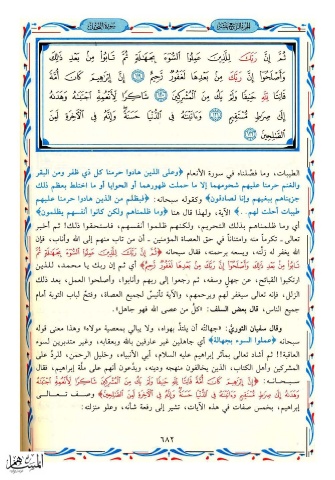 ثُمَّ إِنَّ رَبَّكَ لِلَّذِينَ عَمِلُوا السُّوءَ بِجَهَالَةٍ ثُمَّ تَابُوا مِنْ بَعْدِ ذَلِكَ
وَأَصْلَحُوا إِنَّ رَبَّكَ مِنْ بَعْدِهَا لَغَفُورٌ رَحِيمٌ إِنَّ إِبْرَاهِيمَ كَانَ أُمَّةً
قَانِتًا لِلَّهِ حَنِيفًا وَلَمْ يَكُ مِنَ الْمُشْرِكِينَ شَاكِرًا لِأَنْعُمِهِ اجْتَبَاهُ وَهَدَاهُ
إِلَى صِرَاطٍ مُسْتَقِيمٍ وَآتَيْنَاهُ فِي الدُّنْيَا حَسَنَةً وَإِنَّهُ فِي الْآخِرَةِ لَمِنَ
الصَّالِحِينَ
الطيبات، وما فصَّلناه في سورة الأنعام ﴿وعلى الذين هادوا حرمنا كل ذي ظفر ومن البقر
والغنم حرمنا عليهم شحومهما إلا ما حملت ظهورهما أو الحوايا أو ما اختلط بعظم ذلك
جزيناهم ببغيهم وإنا لصادقون﴾ وكقوله سبحانه: ﴿فبظلم من الذين هادوا حرمنا عليهم
طيبات أحلت لهم..﴾ الآية، ولهذا قال هنا ﴿وما ظلمناهم ولكن كانوا أنفسهم يظلمون﴾
أي وما ظلمناهم بذلك التحريم، ولكنهم ظلموا أنفسهم، فاستحقوا ذلك! ثم أخبر
تعالى ـ تكرماً منه وامتناناً في حق العصاة المؤمنين ـ أن من تاب منهم إلى الله وأناب، فإن
الله يغفر له زلَّته، ويسعه برحمته، فقال سبحانه ﴿ثُمَّ إِنَّ رَبَّكَ لِلَّذِينَ عَمِلُوا السُّوءَ بِجَهَالَةٍ ثُمَّ
تَابُوا مِنْ بَعْدِ ذَلِكَ وَأَصْلَحُوا إِنَّ رَبَّكَ مِنْ بَعْدِهَا لَغَفُورٌ رَحِيمٌ﴾ أي ثم إن ربك يا محمد، للذين
ارتكبوا القبائح، عن جهلٍ وسفه، ثم رجعوا إلى ربهم وأنابوا، وأصلحوا العمل، بعد ذلك
الزلل، فإنه تعالى سيغفر لهم ويرحمهم، والآية تأنيسٌ لجميع العصاة، وفتحٌ لباب التوبة أمام
جميع الناس، قال بعض السلف: «كلُّ من عصى الله فهو جاهل».
وقال سفيان الثوري: «جهالتُه أن يلتذَّ بهواه، ولا يبالي بمعصية مولاه» وهذا معنى قوله
سبحانه ﴿عملوا السوء بجهالة﴾ أي جاهلين غير عارفين بالله وبعقابه، وغير متدبرين لسوء
العاقبة!! ثم أشاد تعالى بمآثر إبراهيم عليه السلام، أبي الأنبياء، وخليل الرحمن، للردِّ على
المشركين وأهل الكتاب، الذين يخالفون منهجه ودينه، ويدَّعون أنهم على ملَّة إبراهيم، فقال
سبحانه: ﴿إِنَّ إِبْرَاهِيمَ كَانَ أُمَّةً قَانِتًا لِلَّهِ حَنِيفًا وَلَمْ يَكُ مِنَ الْمُشْرِكِينَ شَاكِرًا لِأَنْعُمِهِ اجْتَبَاهُ
وَهَدَاهُ إِلَى صِرَاطٍ مُسْتَقِيمٍ وَآتَيْنَاهُ فِي الدُّنْيَا حَسَنَةً وَإِنَّهُ فِي الْآخِرَةِ لَمِنَ الصَّالِحِينَ﴾ وصف تعالى
إبراهيم، بخمس صفات في هذه الآيات، تشير إلى رفعة شأنه، وعلو منزلته:
٦٨٢